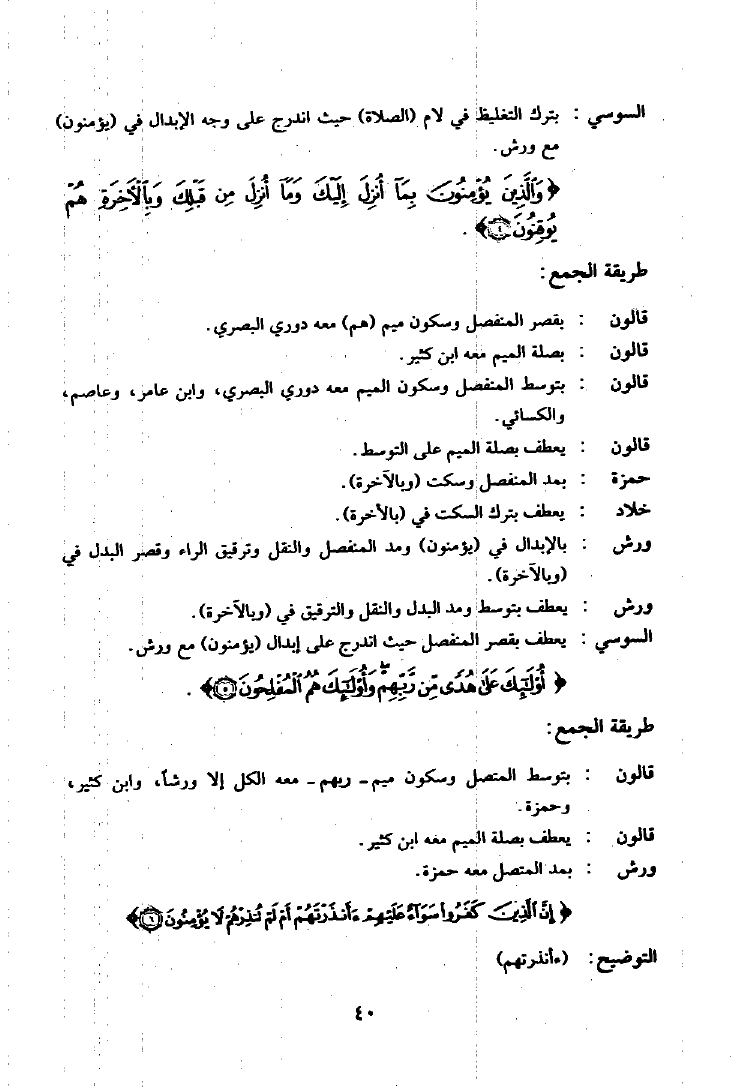 السوسي : بترك التغليظ في لام (الصلاة) حيث اندرج على وجه الإبدال في (يؤمنون)
مع ورش.
﴿وَالَّذِينَ يُؤْمِنُونَ بِمَا أُنزِلَ إِلَيْكَ وَمَا أُنزِلَ مِن قَبْلِكَ وَبِالْآخِرَةِ هُمْ
يُوقِنُونَ ٤﴾ .
طريقة الجمع :
قالون : بقصر المنفصل وسكون ميم (هم) معه دوري البصري.
قالون : بصلة الميم معه ابن كثير.
قالون : بتوسط المنفصل وسكون الميم معه دوري البصري، وابن عامر، وعاصم،
والكسائي.
قالون : يعطف بصلة الميم على التوسط.
حمزة : بمد المنفصل وسكت (وبالآخرة).
خلاد : يعطف بترك السكت في (بالآخرة).
ورش : بالإبدال في (يؤمنون) ومد المنفصل والنقل وترقيق الراء وقصر البدل في
(وبالآخرة).
ورش : يعطف بتوسط ومد البدل والنقل والترقيق في (وبالآخرة).
السوسي : يعطف بقصر المنفصل حيث اندرج على إبدال (يؤمنون) مع ورش.
﴿أُوْلَٰٓئِكَ عَلَىٰ هُدًى مِّن رَّبِّهِمْ ۖ وَأُوْلَٰٓئِكَ هُمُ الْمُفْلِحُونَ ٥﴾ .
طريقة الجمع :
قالون : بتوسط المتصل وسكون ميم ـ ربهم ـ معه الكل إلا ورشاً، وابن كثير،
وحمزة.
قالون : يعطف بصلة الميم معه ابن كثير.
ورش : بمد المتصل معه حمزة.
﴿إِنَّ الَّذِينَ كَفَرُوا سَوَآءٌ عَلَيْهِمْ ءَأَنذَرْتَهُمْ أَمْ لَمْ تُنذِرْهُمْ لَا يُؤْمِنُونَ ٦﴾
التوضيح : (ءأنذرتهم)
٤٠